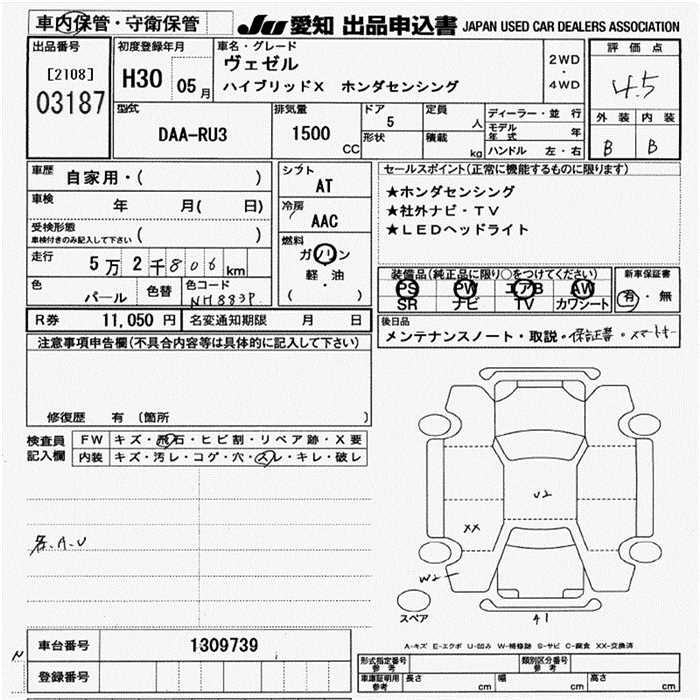 車内保管・守衛保管 JU 愛知 出品申込書 JAPAN USED CAR DEALERS ASSOCIATION
出品番号
[2108]
03187
初度登録年月
H30 05月
車名・グレード
ヴェゼル
ハイブリッドX ホンダセンシング
2WD
・
4WD
評価点
4.5
外装 内装
B B
型式
DAA-RU3
排気量
1500 CC
ドア
5
形状
定員
人
積載
kg
ディーラー・並行
モデル年式 年
ハンドル 左・右
車歴
自家用・( )
車検
年 月( 日)
受検形態
車検付きのみ記入して下さい ( )
走行
5万2千806km
色
パール
色替
色コード
NH883P
シフト
AT
冷房
AAC
燃料
ガソリン
軽・油
( )
R券 11,050 円 名変通知期限 月 日
セールスポイント(正常に機能するものに限ります)
★ホンダセンシング
★社外ナビ・TV
★LEDヘッドライト
装備品(純正品に限り○をつけてください)
PS PW エアB AW
SR ナビ TV カワシート
新車保証書
有・無
後日品
メンテナンスノート・取説・保証書・スマートキー
注意事項申告欄(不具合内容等は具体的に記入して下さい)
修復歴 有(箇所 )
検査員
記入欄
FW キズ・飛石・ヒビ割・リペア跡・X要
内装 キズ・汚レ・コゲ・穴・スレ・キレ・破レ
各.A.U
U2
XX
W2
A1
スペア
A-キズ E-エクボ U-凹み W-補修跡 S-サビ C-腐食 XX-交換済
車台番号 1309739
登録番号
形式指定番号
参考
類別区分番号
参考
車庫証明用
参考
長さ cm 幅 cm 高さ cm